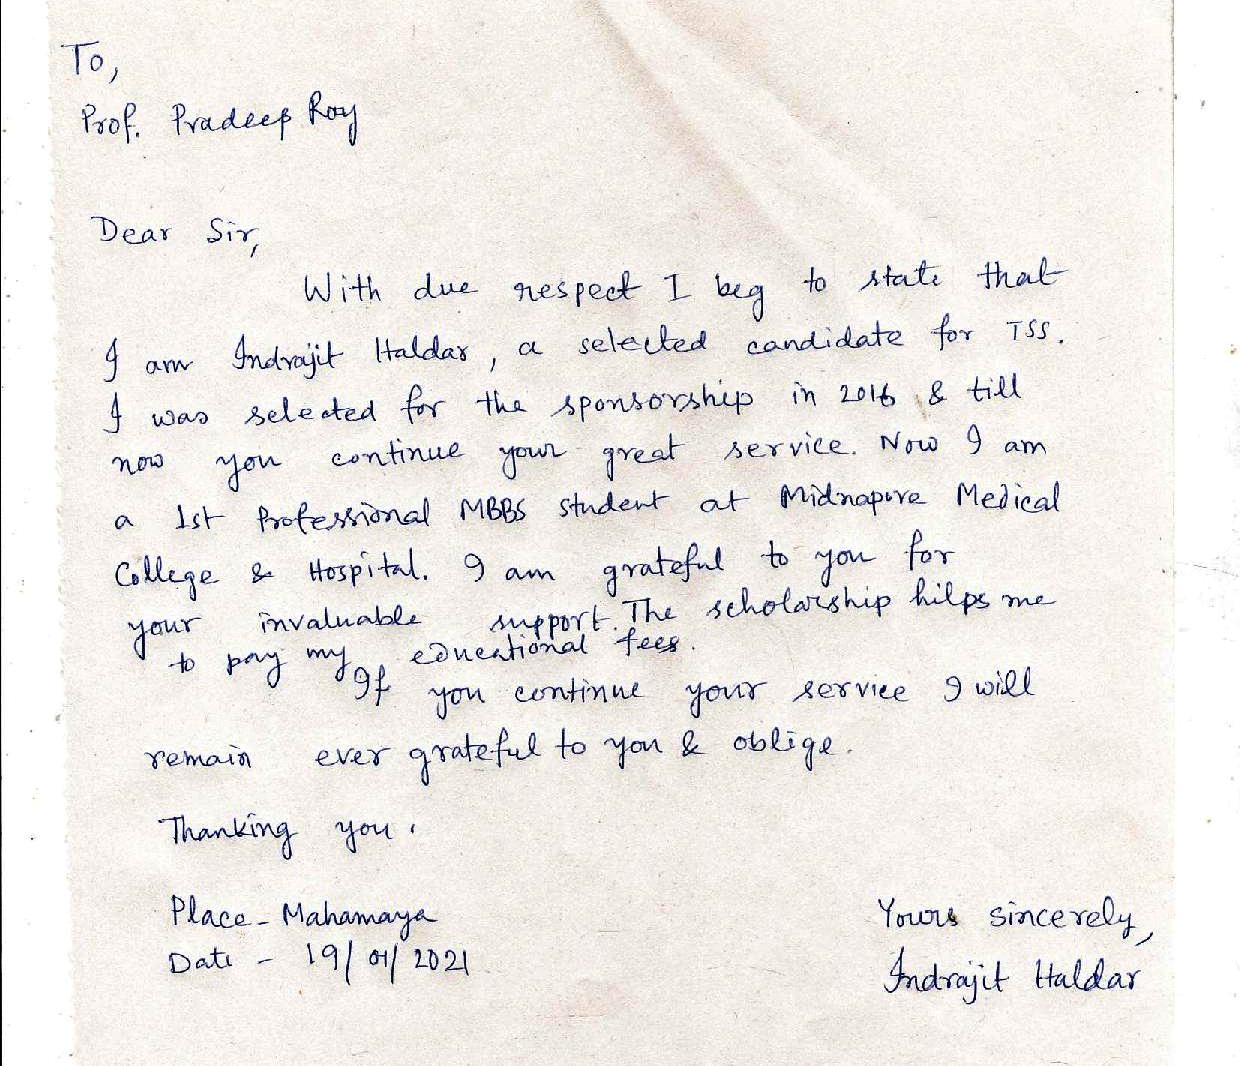 To,
Prof. Pradeep Roy
Dear Sir,
With due respect I beg to state that
I am Indrajit Haldar, a selected candidate for TSS.
I was selected for the sponsorship in 2016 & till
now you continue your great service. Now I am
a 1st Professional MBBS student at Midnapore Medical
College & Hospital. I am grateful to you for
your invaluable support. The scholarship hilps me
to pay my educational fees.
If you continue your service I will
remain ever grateful to you & oblige.
Thanking you.
Place - Mahamaya
Date - 19/01/2021
Yours sincerely,
Indrajit Haldar